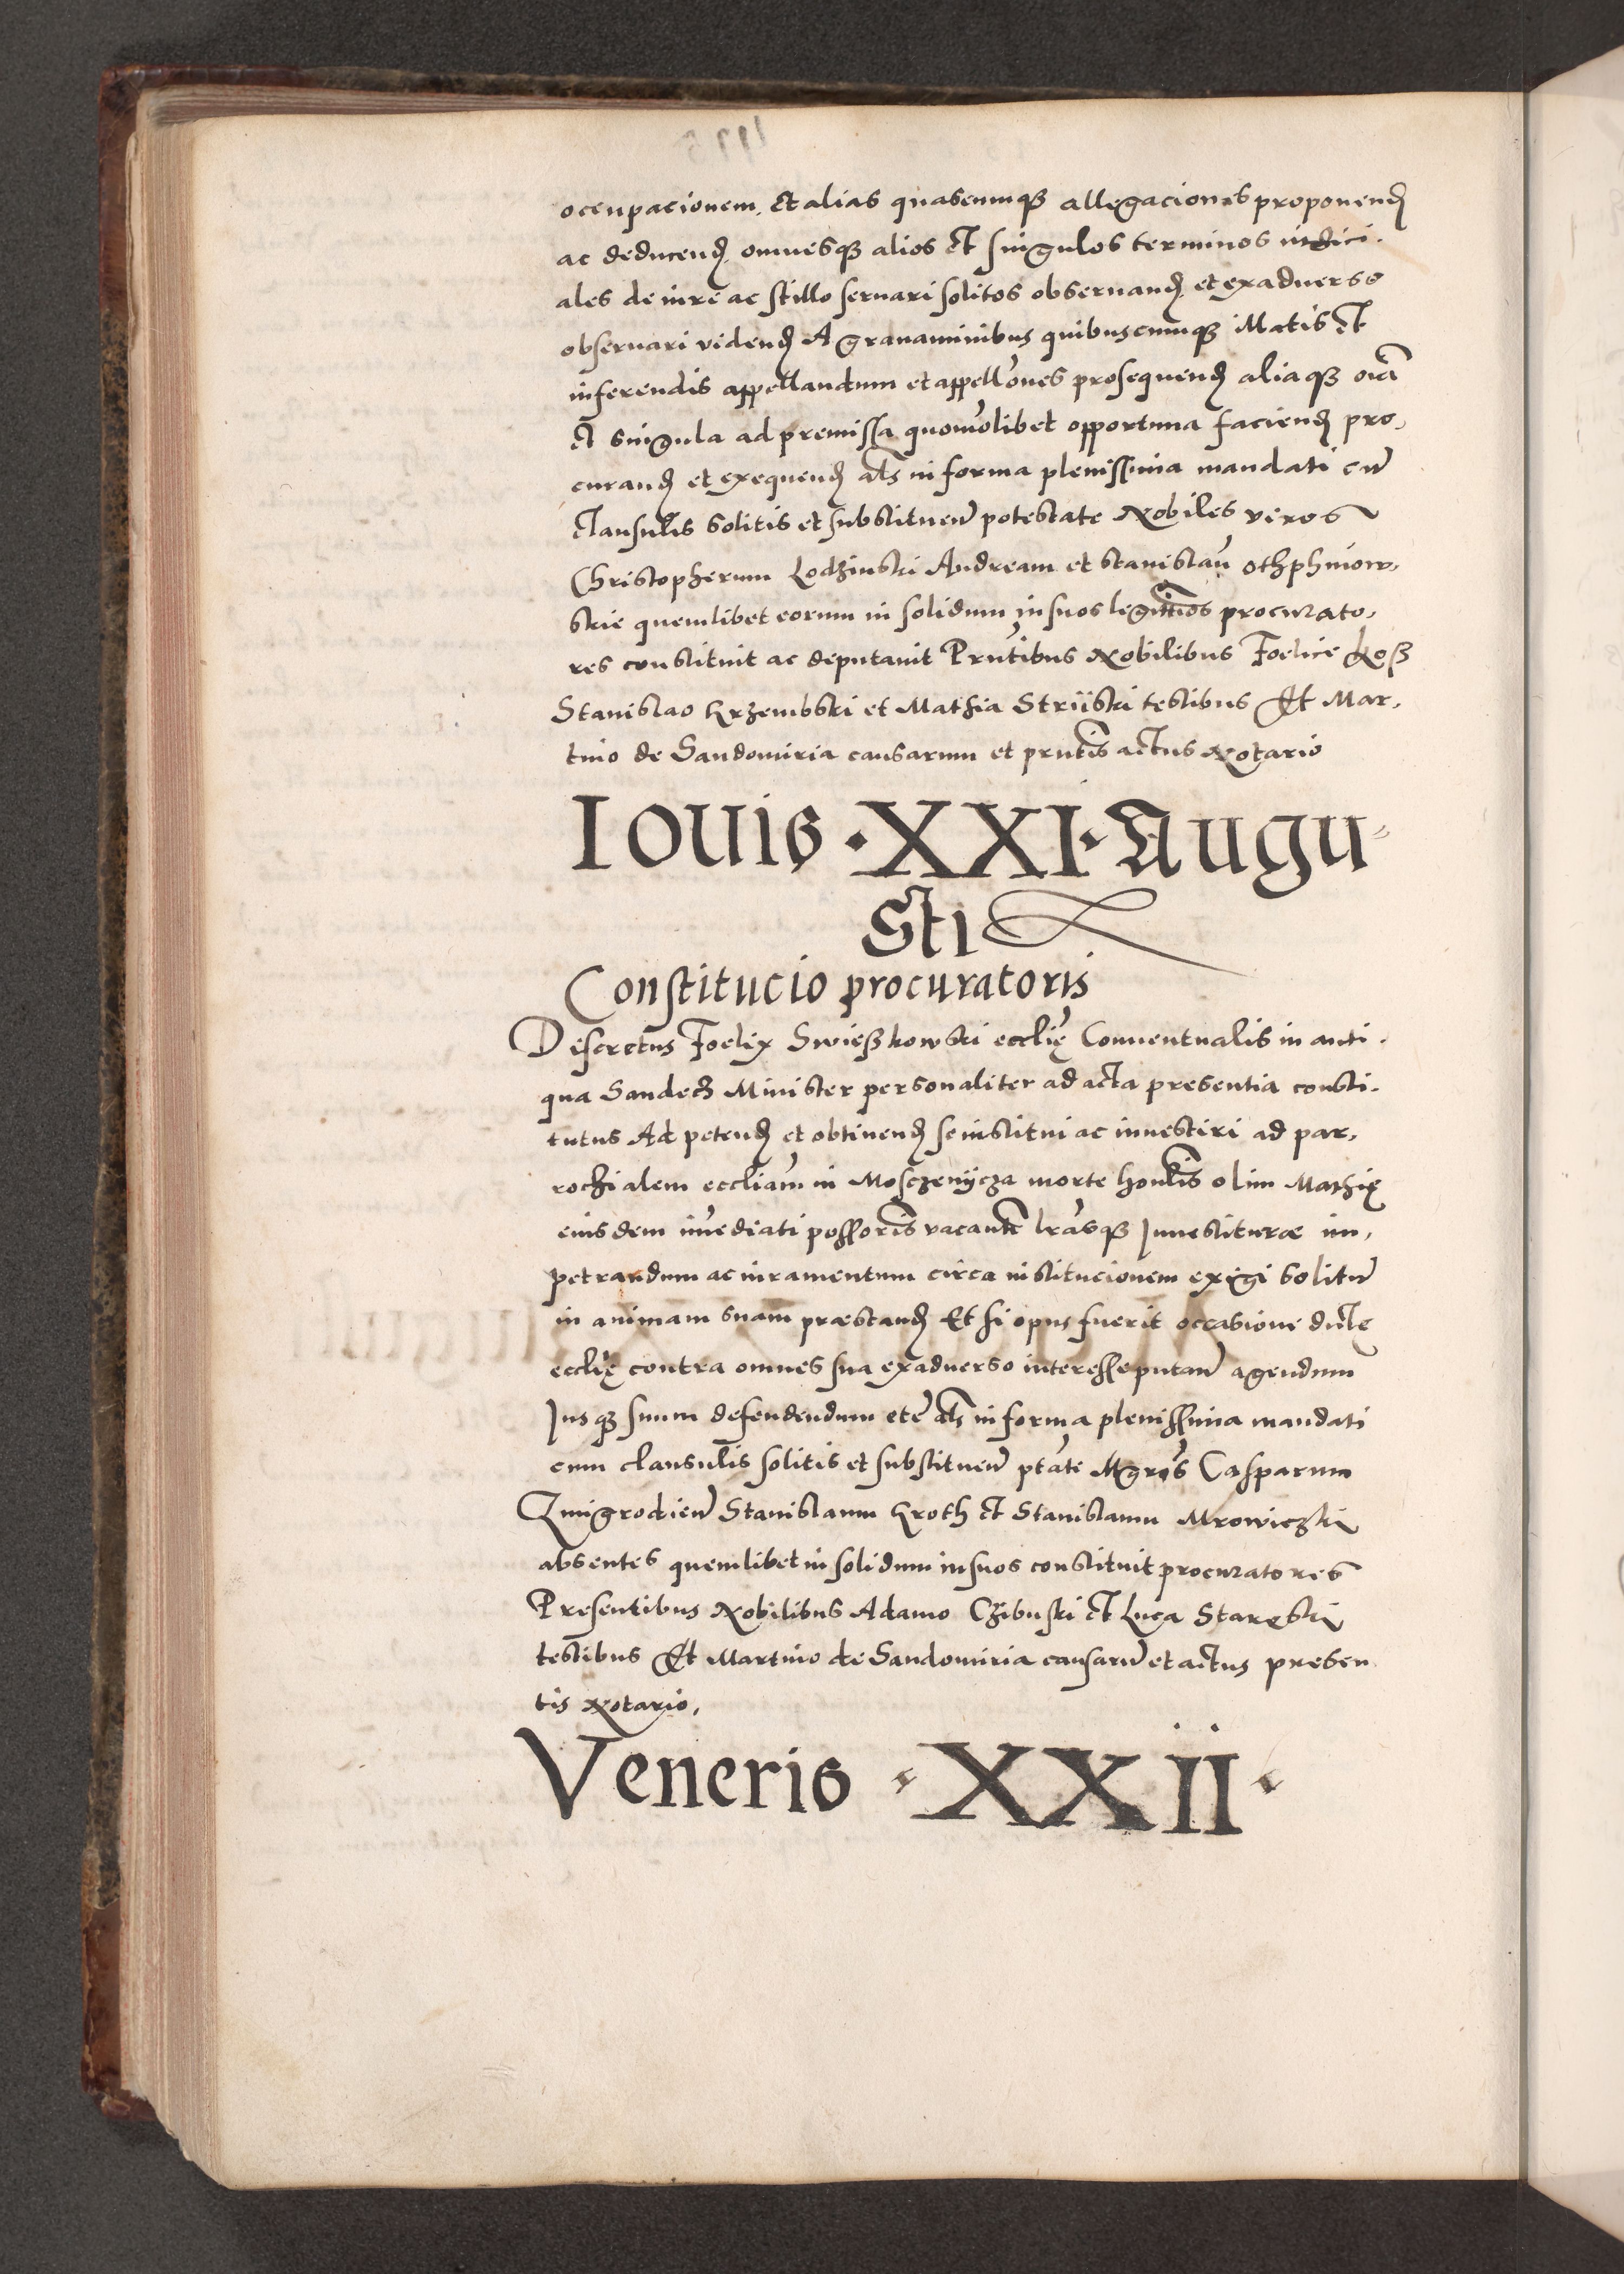 occupacionem. Et alias quascumqꝫ allegaciones proponenđ
ac deducenđ. omnesqꝫ alios et singulos terminos iudici-
ales de iure ac stillo seruari solitos obseruanđ. et exaduerso
obseruari videnđ A grauaminibus quibuscumqꝫ illatis et
inferendis appellandum et appellōnes prosequenđ aliaqꝫ oīa
et singula ad premissa quomōlibet opportuna facienđ pro,
curanđ et exequenđ aƚs in forma plenissima mandati cū
clausulis solitis et substituēn potestate Nobiles viros
Christopherum Lodzinski Andream et Stanislaū
skie quemlibet eorum in solidum in suos legittīos procurato,
res constituit ac deputauit Pn̄tibus Nobilibus Foelice Koß
Stanislao Krzembski et Mathia Striiski testibus Et Mar,
tino de Sandomiria causarum et pn̄tis actus Notario
Iouis · XXI · Augu
sti
Constitucio procuratoris
Discretus Foelix Swießkowski eccƚię Conuentualis in anti-
qua Sandecz Minister personaliter ad acta presentia consti-
tutus Ad petenđ et obtinenđ se institui ac inuestiri ad par,
rochialem eccƚiam in Mosczenycza morte honƚis olim Mathię
eiusdem īmediati possoris vacantē lrāsqꝫ Inuestiturae im,
petrandum ac iuramentum circa institucionem exigi solitū
in animam suam praestanđ Et si opus fuerit occasione dictę
eccƚię contra omnes sua exaduerso interesse putān agendum
Iusqꝫ suum defendendum etc̄ aƚs in forma plenissima mandati
cum clausulis solitis et substituēn ptāte Mgrōs Casparum
Zmigrodieñ Stanislaum Kroth et Stanislaum Mrowiczki
absentes quemlibet in solidum in suos constituit procuratores
Presentibus Nobilibus Adamo Czibuski et Luca Staręski
testibus Et Martino de Sandomiria causarū et actus presen
tis Notario,
Veneris · XXII ·